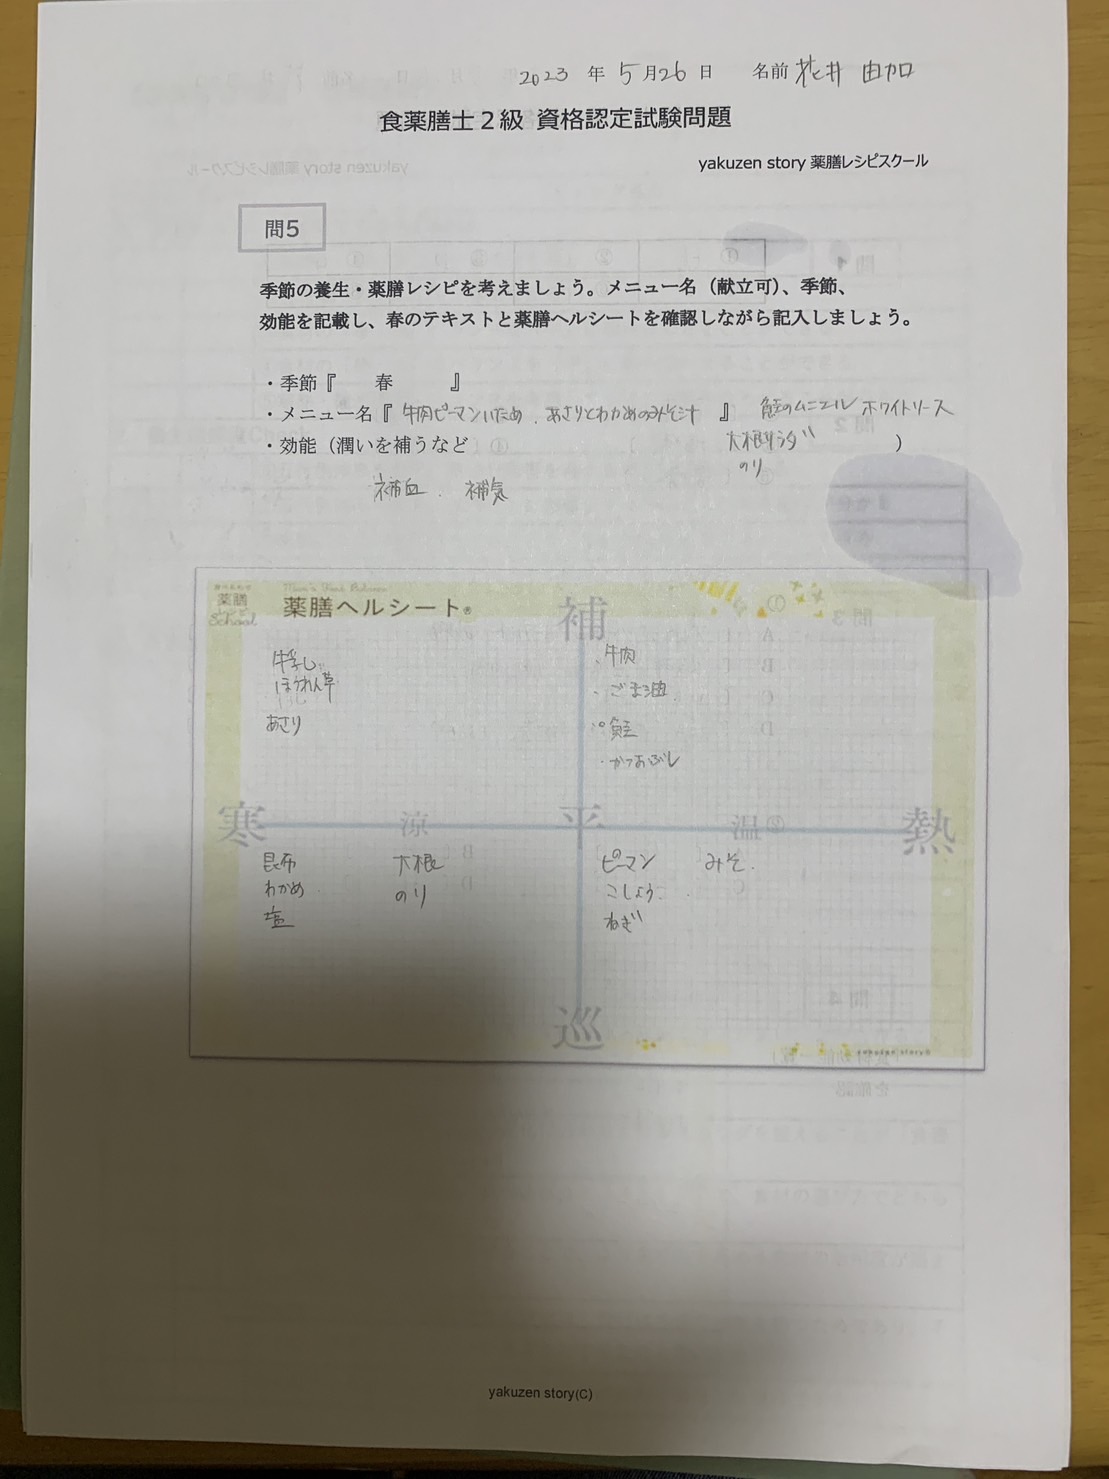 2023 年 5月26日 名前 花井 由加
食薬膳士２級 資格認定試験問題
yakuzen story 薬膳レシピスクール
問5
季節の養生・薬膳レシピを考えましょう。メニュー名（献立可）、季節、
効能を記載し、春のテキストと薬膳ヘルシートを確認しながら記入しましょう。
・季節『 春 』
・メニュー名『 牛肉ピーマンいため、あさりとわかめのみそ汁 』 鮭のムニエル ホワイトソース
・効能（潤いを補うなど 大根サラダ ）
のり
補血、補気
薬膳
School
薬膳ヘルシート®
補
牛乳
ほうれん草
あさり
・牛肉
・ごま油
・鮭
・かつおぶし
寒 涼 平 温 熱
昆布 大根
わかめ のり
塩
ピーマン みそ
こしょう
ねぎ
巡
yakuzen story®
yakuzen story(C)